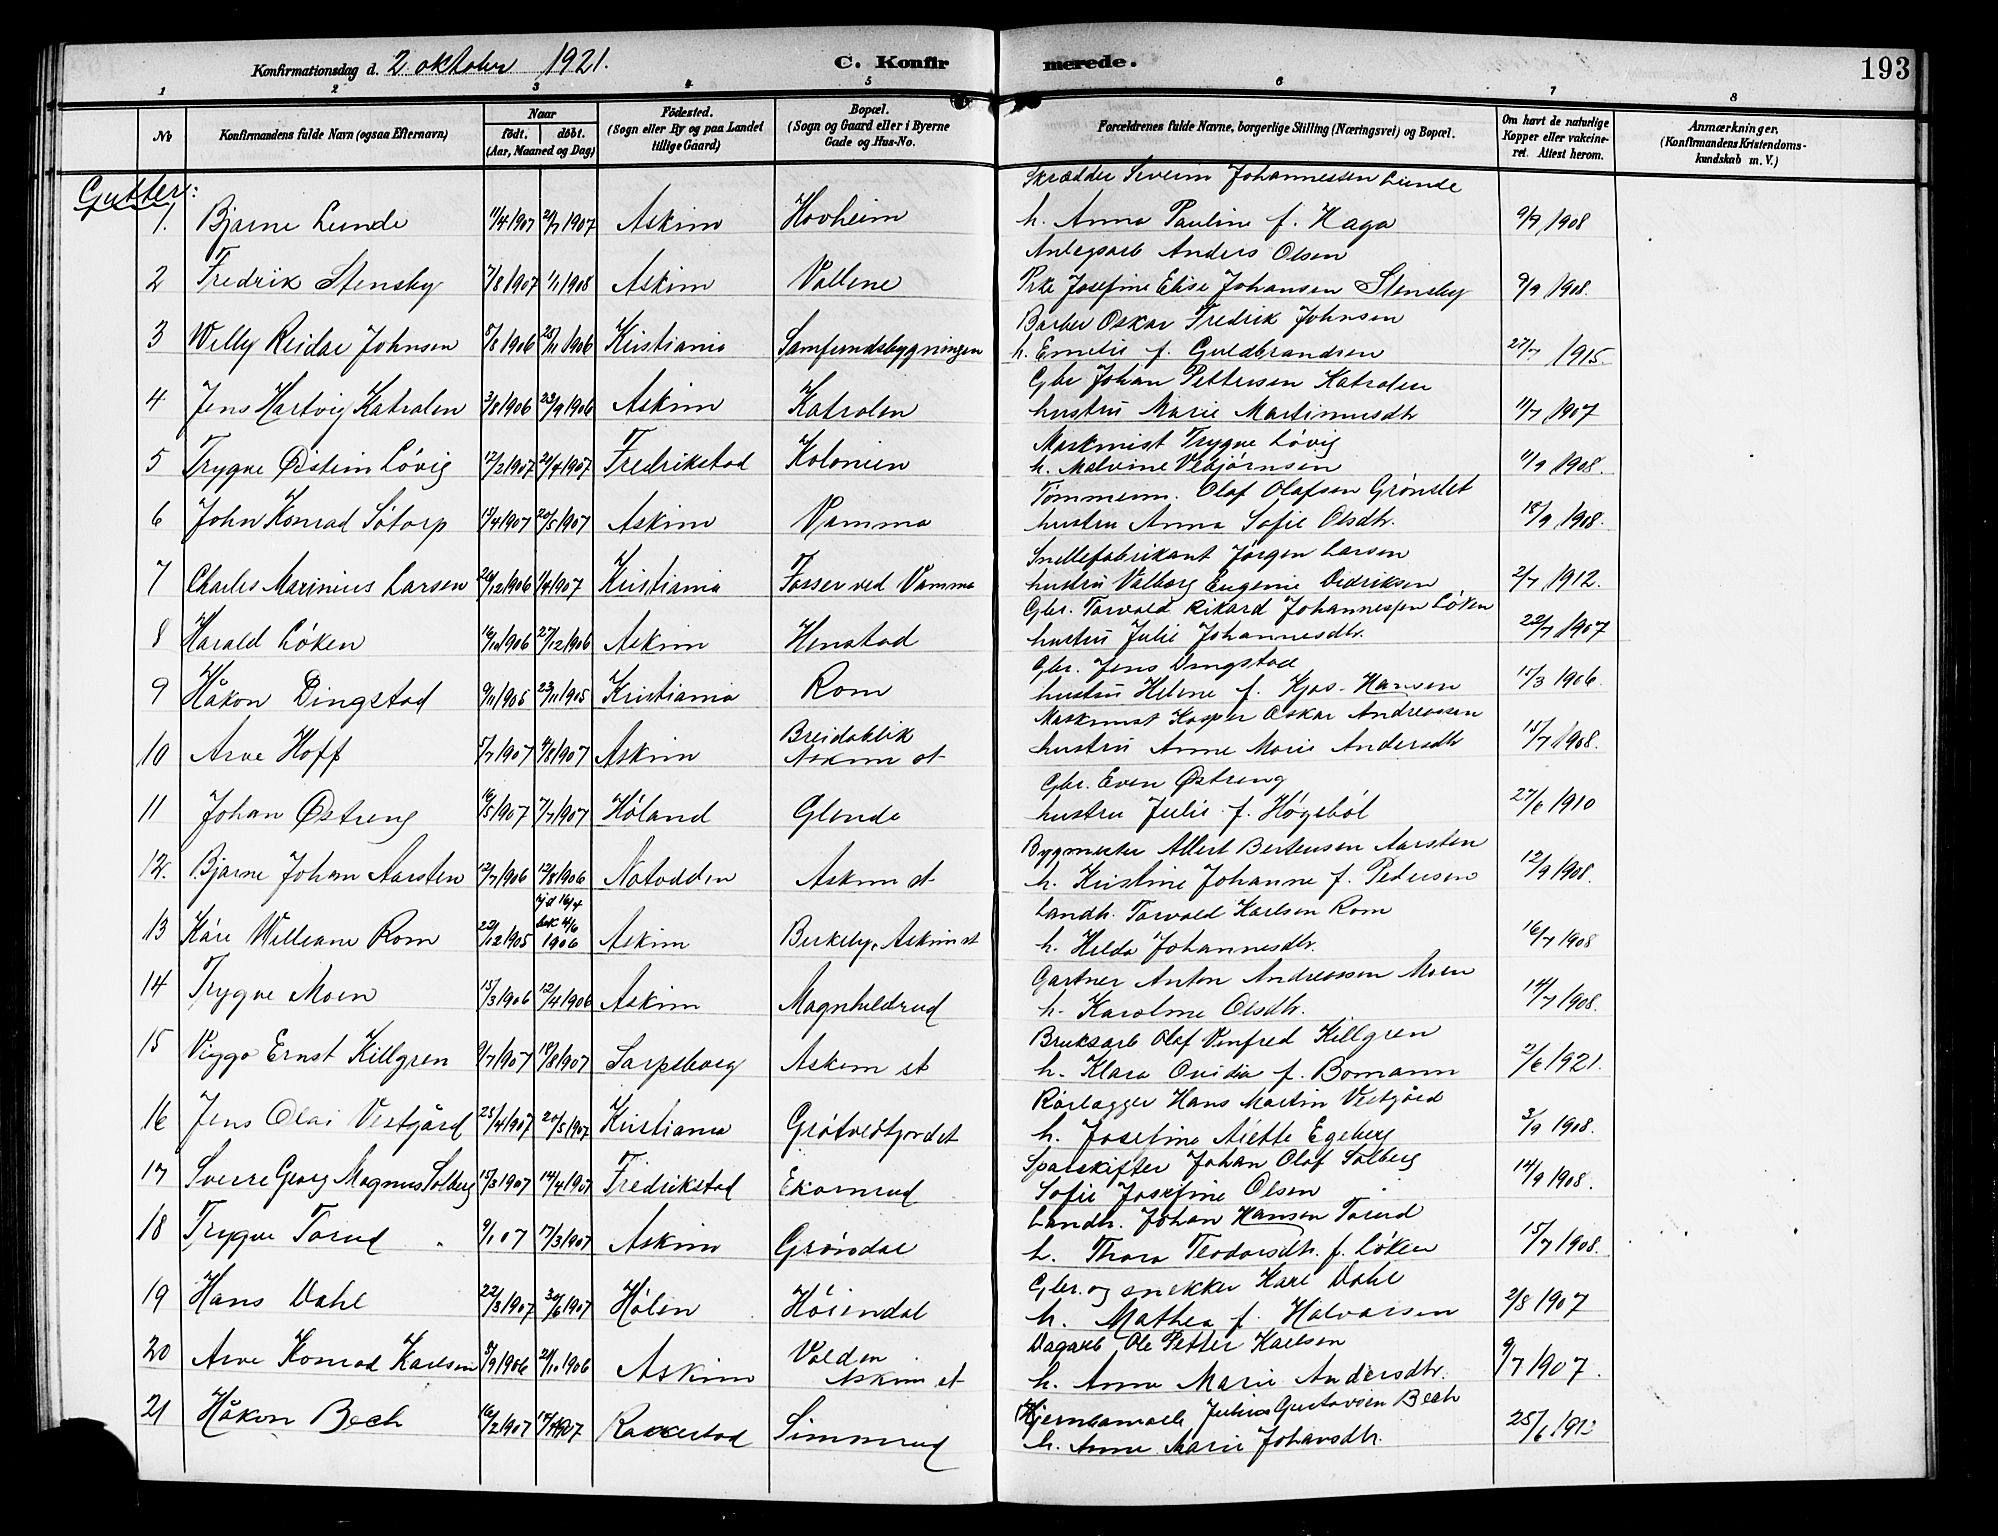 Konfirmationsdag d. 2 oktober 1921. C. Konfirmerede. 193
1 2 3 4 5 6 7 8
No Konfirmandens fulde Navn (ogsaa Efternavn) Naar födt. döbt. (Aar, Maaned og Dag) Födested. (Sogn eller By og paa Landet tillige Gaard) Bopæl. (Sogn og Gaard eller i Byerne Gade og Hus-No. Forældrenes fulde Navne, borgerlige Stilling (Næringsvei) og Bopæl. Om havt de naturlige Kopper eller vakcineret. Attest herom. Anmærkninger. (Konfirmandens Kristendomskundskab m. V.)
Gutter:
Skrædder Severin Johannessen Lunde
1. Bjarne Lunde 11/4 1907 21/7 1907 Askim Hovheim h. Anna Pauline f. Haga 9/9 1908
Anlegsarb Anders Olsen
2 Fredrik Stensby 7/8 1907 1/1 1908 Askim Vallene Pike Josefine Elise Johansen Stensby 9/9 1908.
Barber Oskar Fredrik Johnsen
3 Willy Reidar Johnsen 5/8 1906 25/11 1906 Kristiania Samfundsbygningen h. Emelie f. Guldbrandsen 27/7 1915.
Gbr Johan Pettersen Katralen
4 Jens Hartvig Katralen 3/8 1906 23/9 1906 Askim Katralen hustru Marie Martinusdtr 11/7 1907
Maskinist Trygve Lövig
5 Trygve Østein Lövig 12/2 1907 20/4 1907 Fredrikstad Kolonien h. Malvine Vebjørnsen 11/9 1908.
Tømmerm. Olaf Olafsen Grönslet
6 John Konrad Sötorp 13/4 1907 20/5 1907 Askim Vamma hustru Anna Sofie Olsdtr. 18/9 1908.
Snellefabrikant Jörgen Larsen
7 Charles Marinius Larsen 26/12 1906 1/4 1907 Kristiania Fosser ved Vamma hustru Valborg Eugenie Didriksen 2/7 1912.
Gbr. Torvald Rikard Johannessen Löken
8 Harald Löken 16/10 1906 27/12 1906 Askim Henstad hustru Julie Johannesdtr. 22/7 1907
Gbr. Jens Dingstad
9 Håkon Dingstad 9/11 1905 23/11 1905 Kristiania Rom hustru Helene f. Kjos-Hansen 15/3 1906.
Maskinist Kasper Oskar Andreassen
10 Arve Hoff 5/7 1907 4/8 1907 Askim Breidablik Askim st hustru Anne Marie Andersdtr 15/7 1908.
Gbr. Even Østreng
11 Johan Østreng 16/5 1907 7/7 1907 Höland Glenda hustru Julie f. Högsböl 27/6 1910
Bygmester Albert Bertensen Aarsten
12. Bjarne Johan Aarsten 12/7 1906 12/8 1906 Notodden Askim st h. Kristine Johanne f. Pedersen 12/9 1908.
Landh. Torvald Karlsen Rom
13 Kåre William Rom 22/12 1905 hjd 16/4 bek 4/6 1906 Askim Berkeby, Askim st h. Hilda Johannesdtr. 16/7 1908
Gartner Anton Andreassen Moen
14 Trygve Moen 15/3 1906 12/4 1906 Askim Magnhildrud h. Karoline Olsdtr. 14/7 1908.
Bruksarb Olaf Vinfred Killgren
15 Viggo Ernst Killgren 9/7 1907 18/8 1907 Sarpsborg Askim st h. Klara Ovidia f. Bomann 2/6 1921.
Rørlægger Hans Martin Vestgård
16 Jens Olai Vestgård 25/4 1907 20/5 1907 Kristiania Grötvedtjordet h. Josefine Aiette Egeberg 3/9 1908.
Sporskifter Johan Olaf Solberg
17 Sverre Georg Magnus Solberg 15/3 1907 14/4 1907 Fredrikstad Ekornrud Sofie Josefine Olsen 14/9 1908.
Landh. Johan Hansen Torud
18 Trygve Torud 9/1 07 17/3 1907 Askim Gröndal h. Thora Teodorsdtr. f. Löken 15/7 1908.
Gbr. og snekker Karl Dahl
19 Hans Dahl 22/3 1907 30/6 1907 Hölen Höiendal h. Mathea f. Halvorsen 2/8 1907
Dagarb Ole Petter Karlsen
20 Arve Konrad Karlsen 5/9 1906 21/10 1906 Askim Volden Askim st h. Anna Marie Andersdtr. 9/7 1907.
Hjemsamarb Julius Gustavsen Bech
21 Håkon Bech 16/2 1907 14/4 1907 Rakkestad Simmrud h. Anne Marie Johansdtr. 25/6 1912